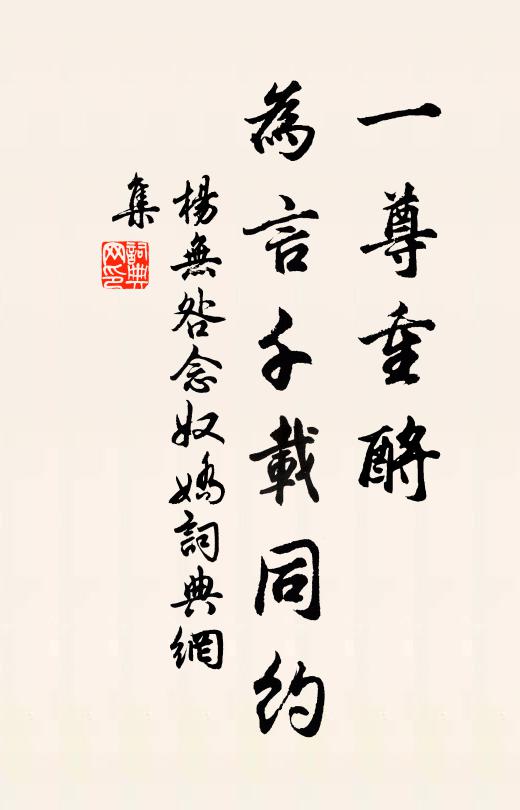 一尊重酹
為言千載同約
楊無咎念奴嬌詞典網
集
詞典
网印